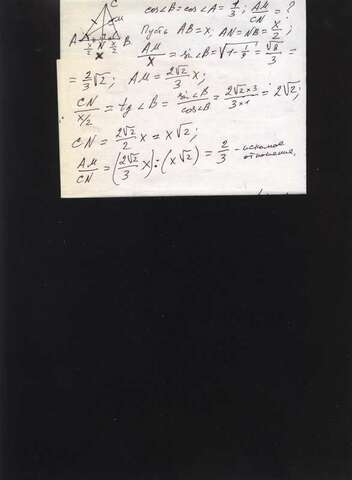 C
cos∠B = cos∠A = 1/3; AM/CN = ?
M
A x/2 N x/2 B
x
Пусть AB = x; AN = NB = x/2;
AM/x = sin∠B = √(1 - 1/9) = √8/3 =
= 2/3 √2; AM = 2√2/3 x;
CN/(x/2) = tg∠B = sin∠B/cos∠B = 2√2 × 3/3 × 1 = 2√2;
CN = 2√2/2 x = x√2;
AM/CN = (2√2/3 x) : (x√2) = 2/3 - искомое
отношение.